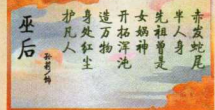 赤发蛇尾
半人身
先祖曾是
女娲神
开拓浑沌
造万物
身处红尘
护凡人
巫后